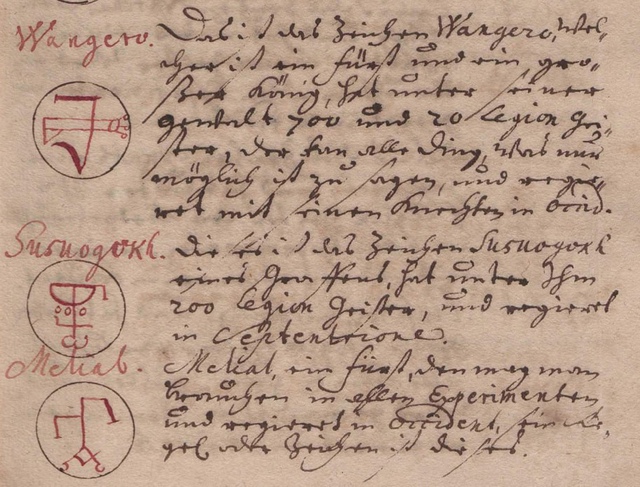 Wangero.
Das ist das Zeichen Wangero, wel-
cher ist ein fürst und ein gro-
ßer König, hat unter seiner
gewalt 700 und 20 Legion Gei-
ster, der kan alle ding, was nur
möglich ist zu sagen, und regie-
ret mit seinen Knechten in Occid.
Susuogokh.
die es ist das Zeichen Susuogokh
eines Graffens, hat unter Ihm
200 Legion Geister, und regieret
in Septentrione.
Meliat.
Meliat, ein fürst, den mag man
brauchen in allen Experimenten
und regieret in Occident, sein Si-
gel oder Zeichen ist dieses.